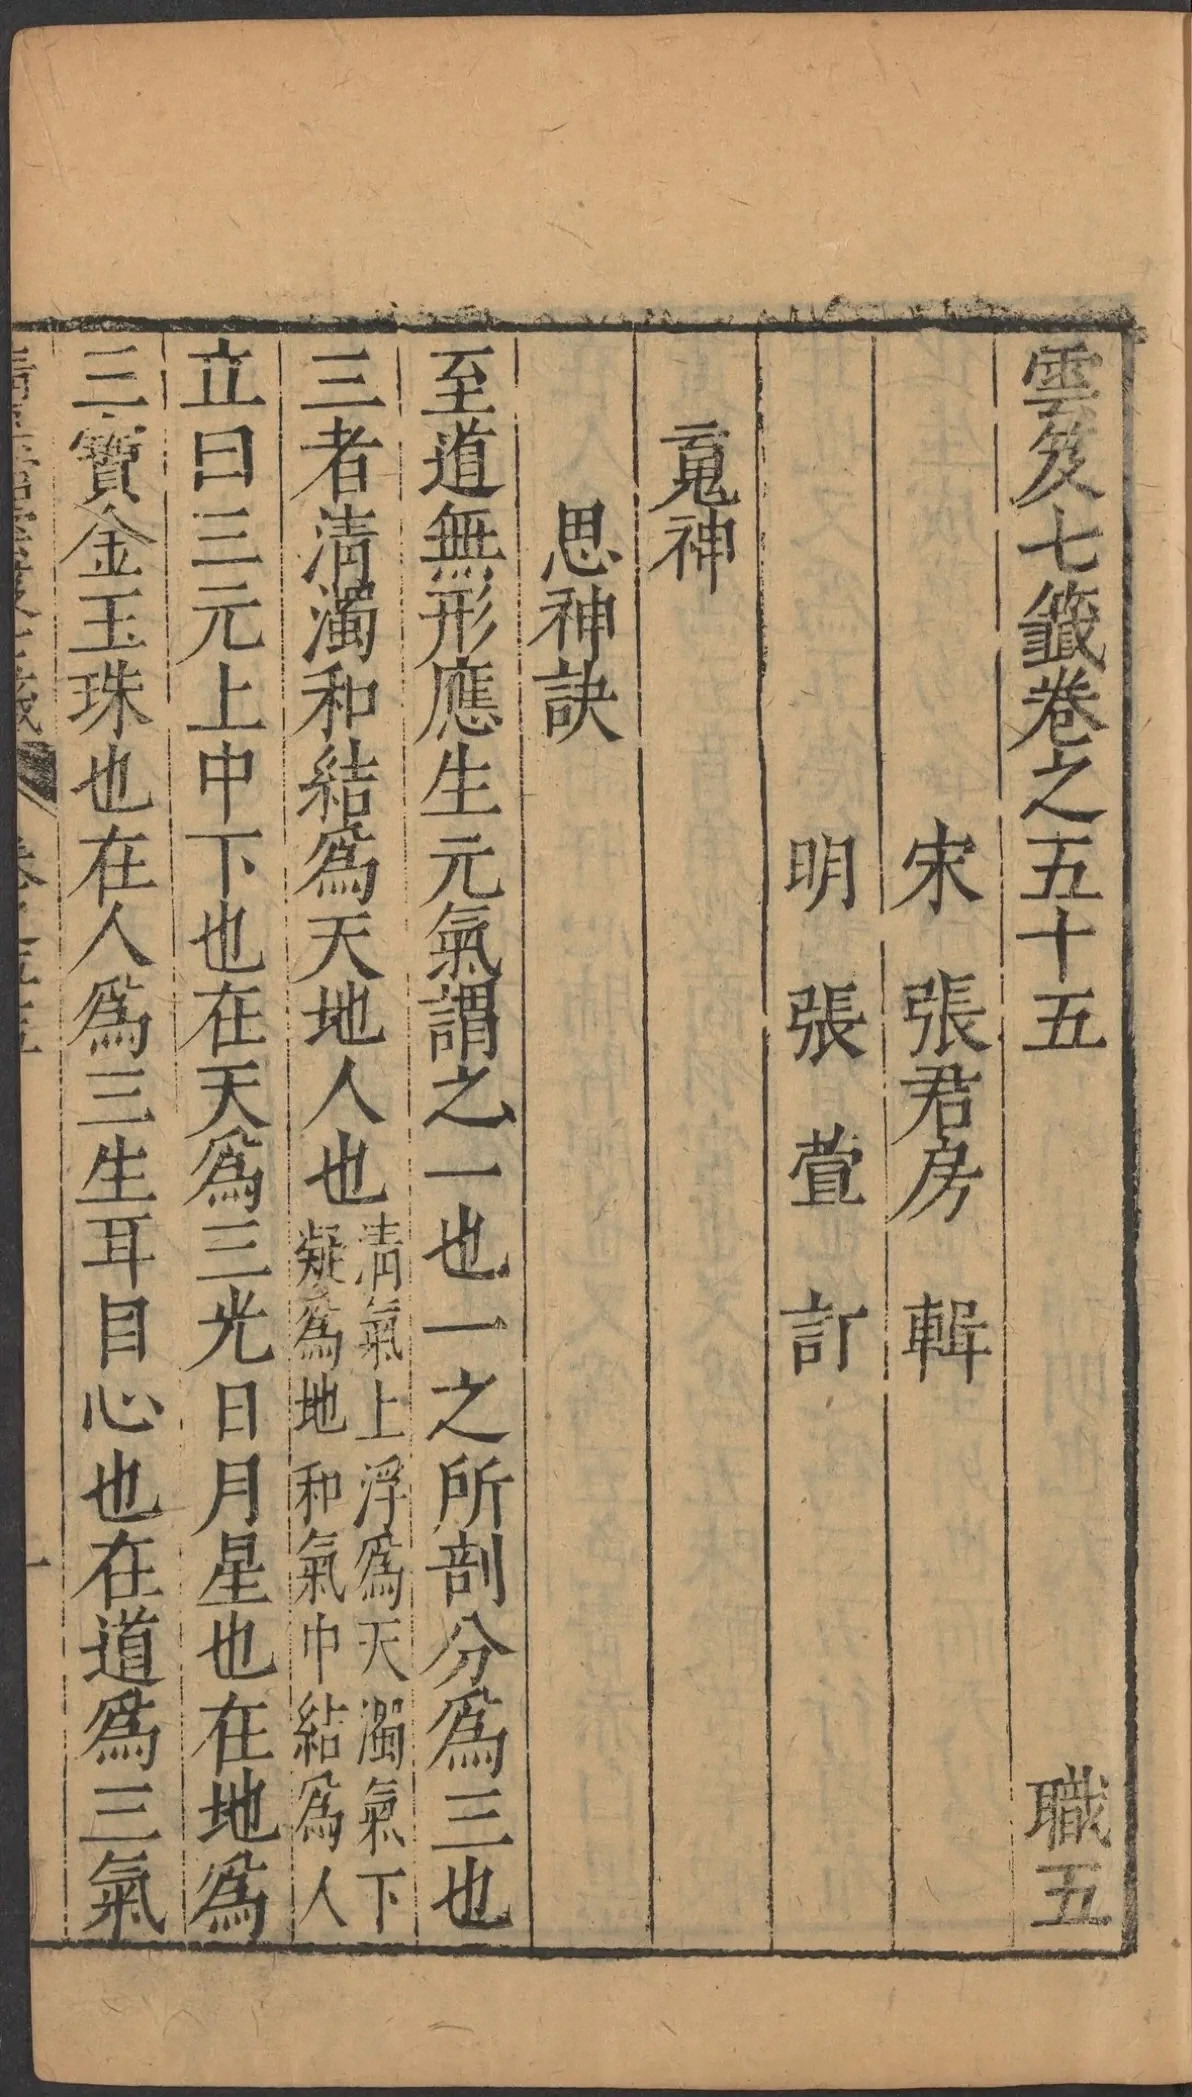 雲笈七籤卷之五十五 職五
宋 張君房 輯
明 張萱 訂
䰟神
思神訣
至道無形應生元氣謂之一也一之所剖分爲三也
三者清濁和結爲天地人也清氣上浮爲天濁氣下
凝爲地和氣中結爲人
立曰三元上中下也在天爲三光日月星也在地爲
三寶金玉珠也在人爲三生耳目心也在道爲三氣